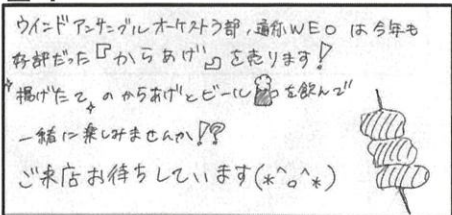 ウインドアンサンブルオーケストラ部、通称WEOは今年も
好評だった『からあげ』を売ります!
揚げたてのからあげとビールを飲んで
一緒に楽しみませんか!?
ご来店お待ちしています(*^o^*)